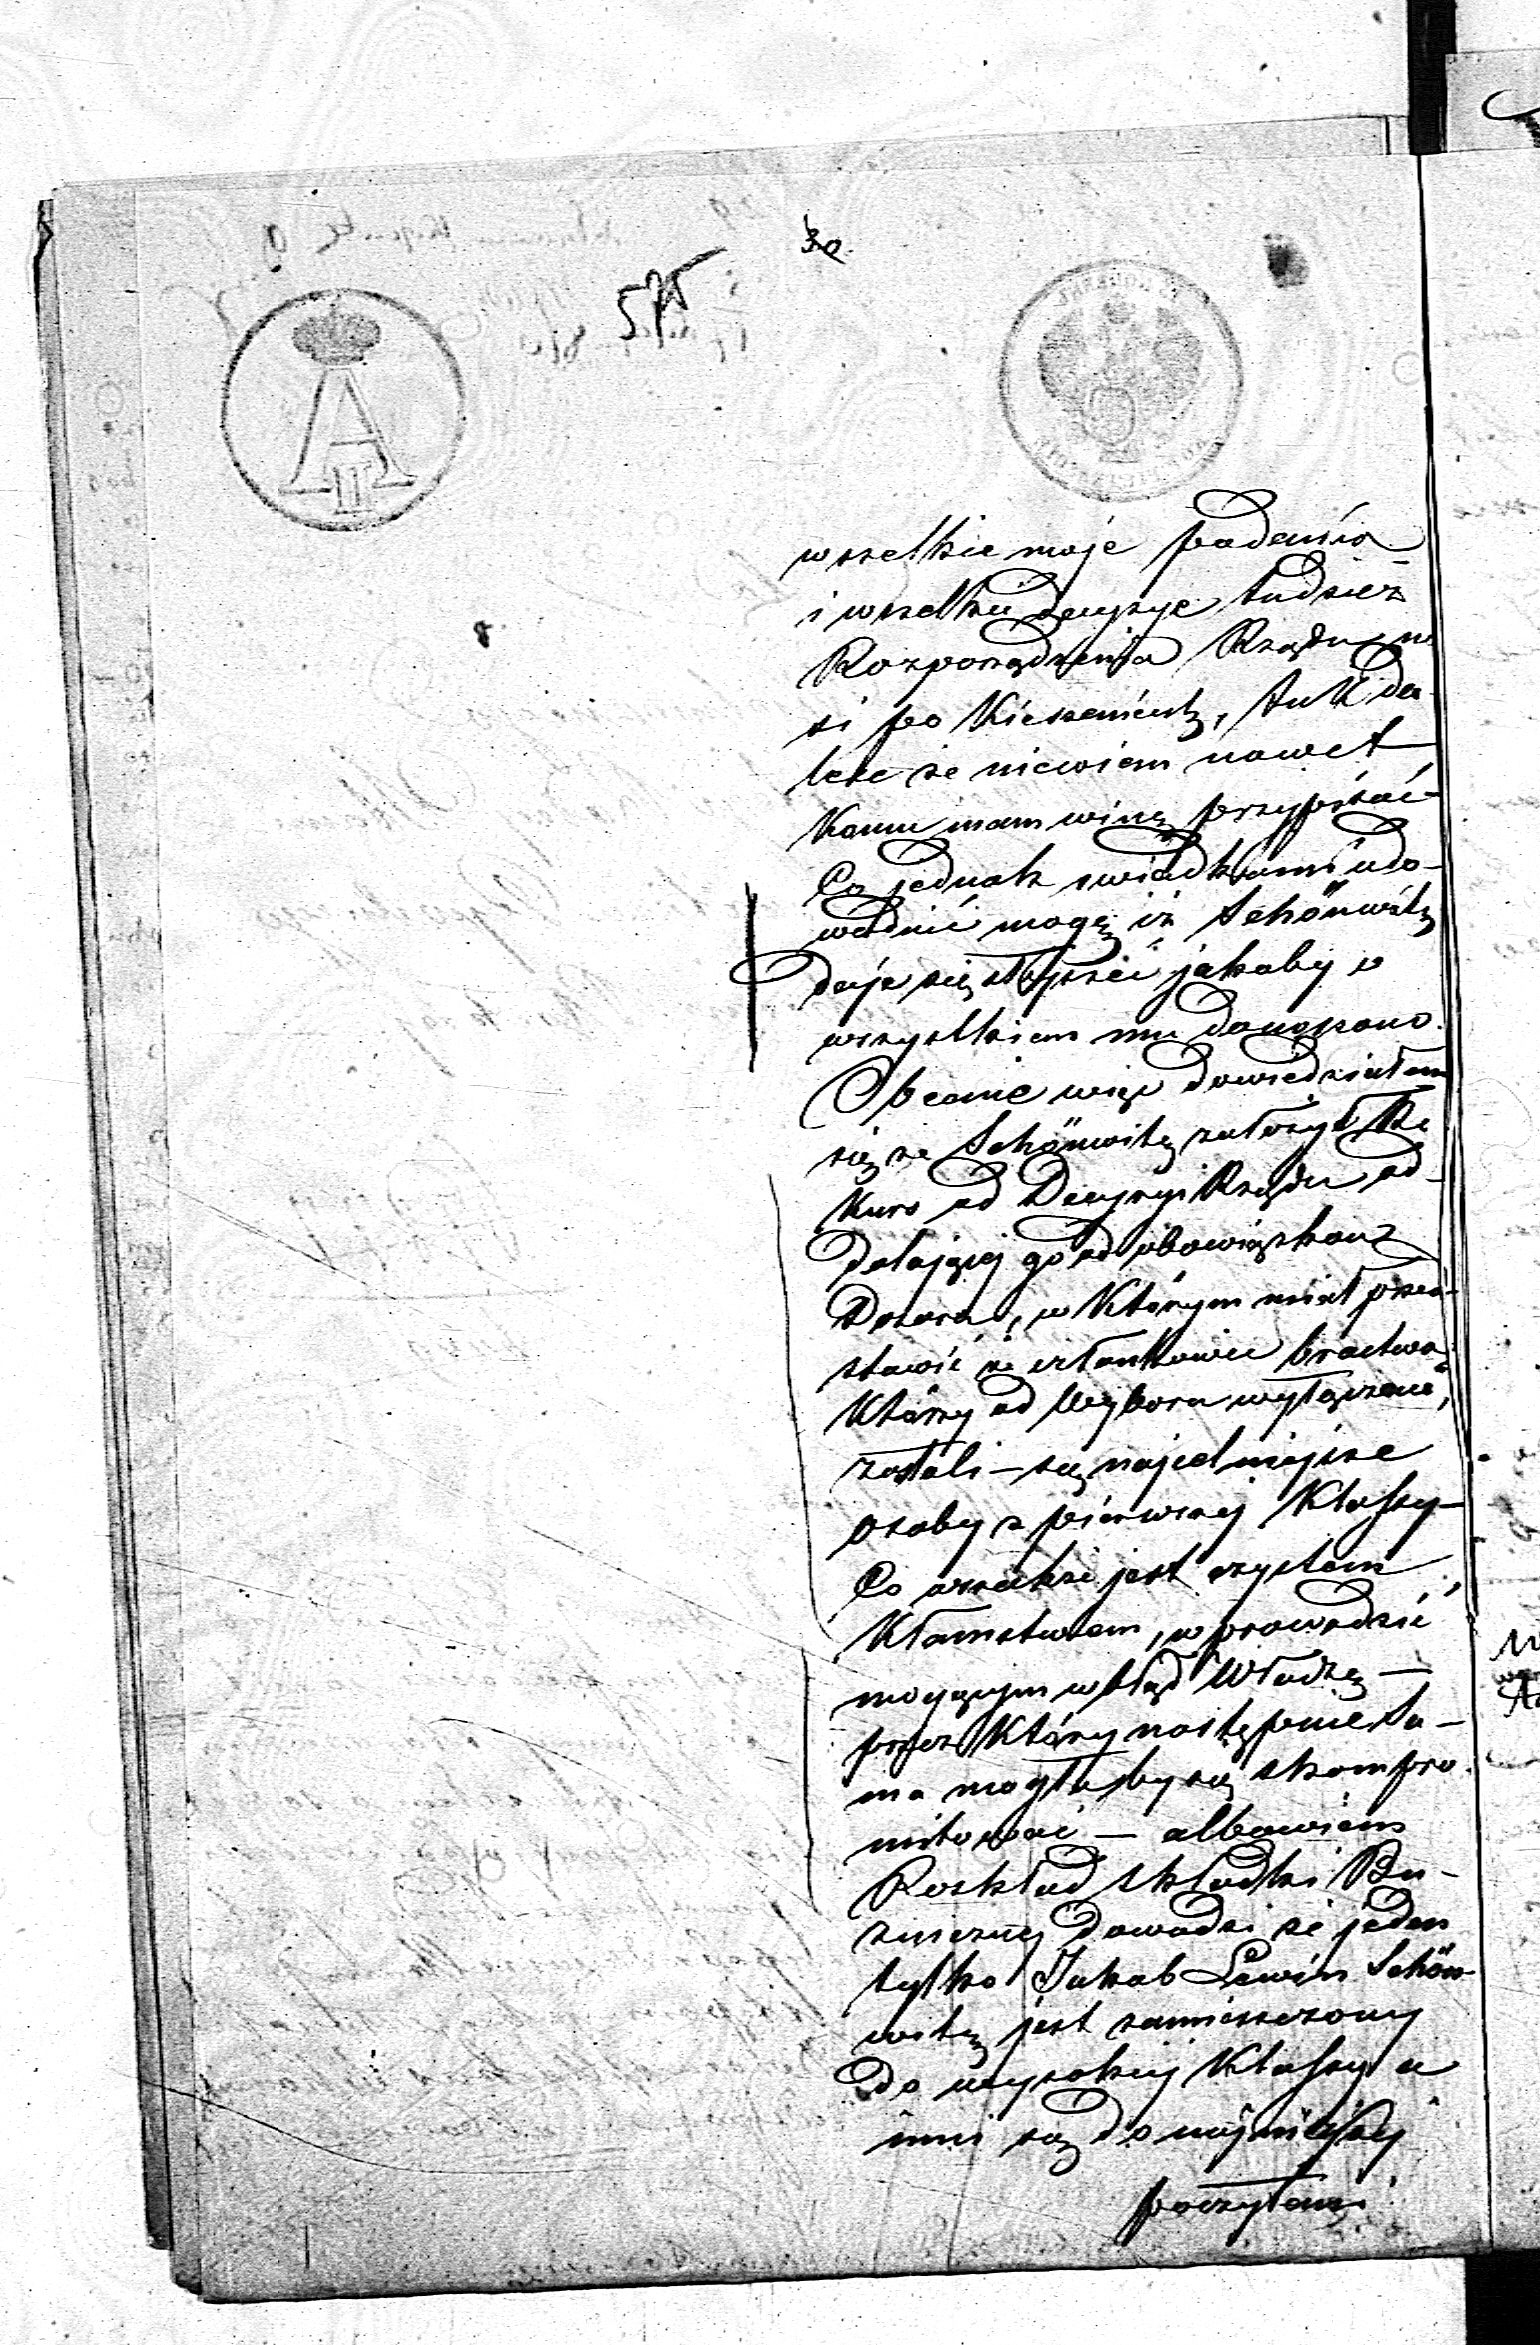 30
575
A II
wszelkie moje podania
i wszelkie decyzye tudzież
Rozporządzenia Rządu no
si po Kieszeniach, tak da-
lece że niewiem nawet
Komu mam winę przypisać-
Co jednak swiadkami udo-
wodnić mogę iż Schönwitz
daje się słyszeć jakoby o
wszystkiem mu donoszono.
Obecnie więc dowiedziałem
się że Schönwitz założył Re
Kurs od Decyzyi Rządu od-
dalającej go od obowiązków
Dozoru, w Którym miał przed-
stawić że członkowie bractwa
Którzy od Wyboru wyłączeni
zostali – są najcelniejsze
osoby z pierwszej Klassy –
Co wszakże jest czystem
Kłamstwem, wprowadzić
mogącym w błąd Władzę –
przez Który następnie Sa-
ma mogłaby się skompro
mitować – albowiem
Rozkład składki Bu-
żniczney dowodzi że jeden
tylko Jakob Lewin Schön-
witz jest zamieszczony
do wysokiej Klassy a
inni są do najniższej
poczytani